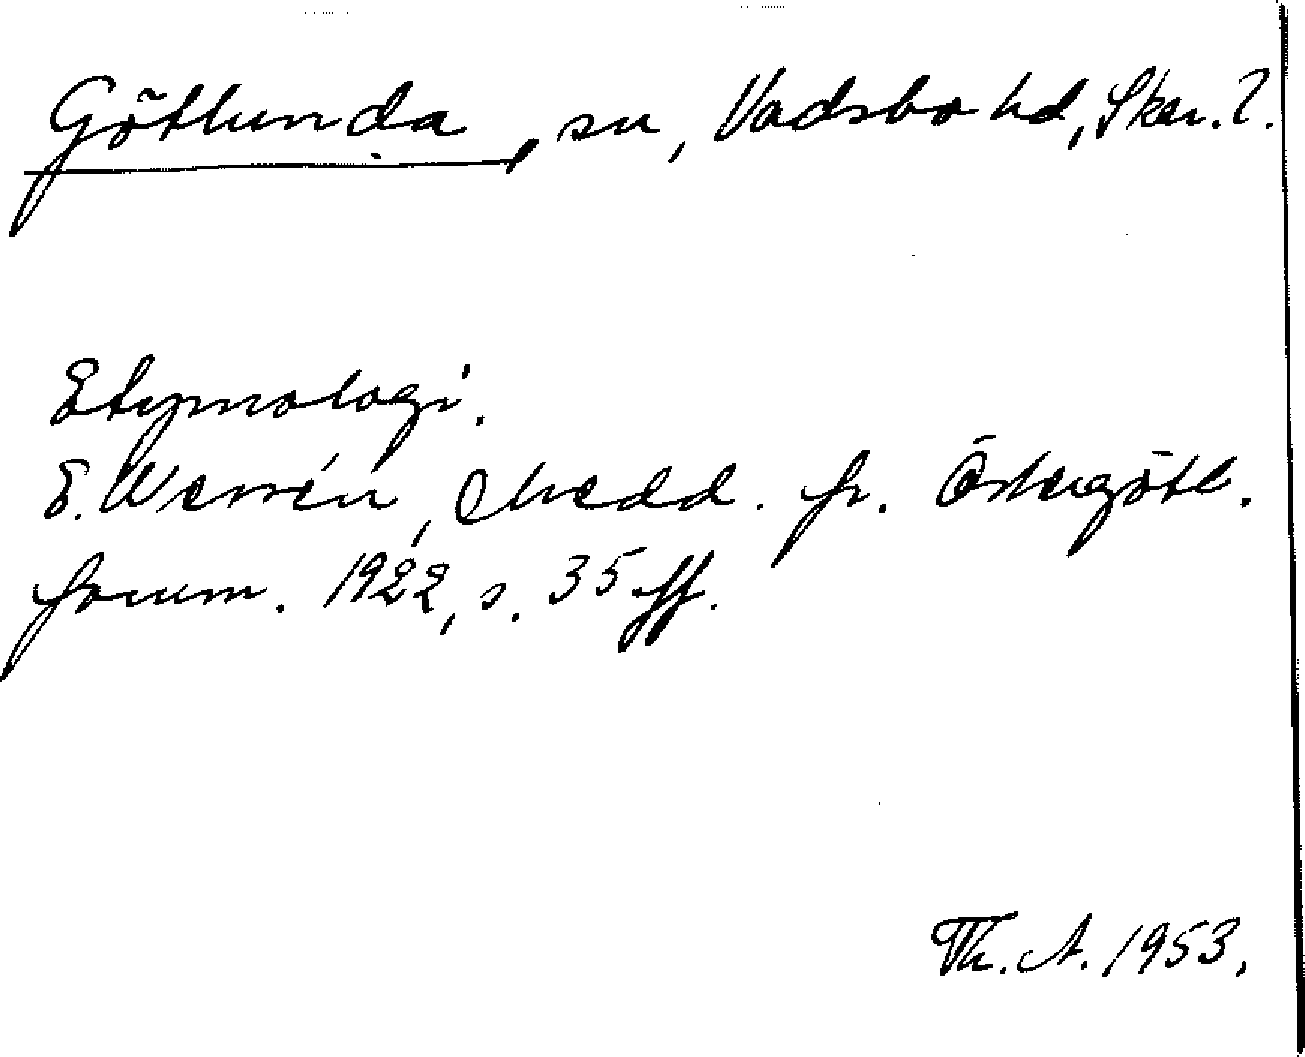 Götlunda, sn, Vadsbo hd, Skar. l.
Etymologi.
E. Wessén, Medd. fr. Östergötl.
fornm. 1922, s. 35 ff.
Th. A. 1953.